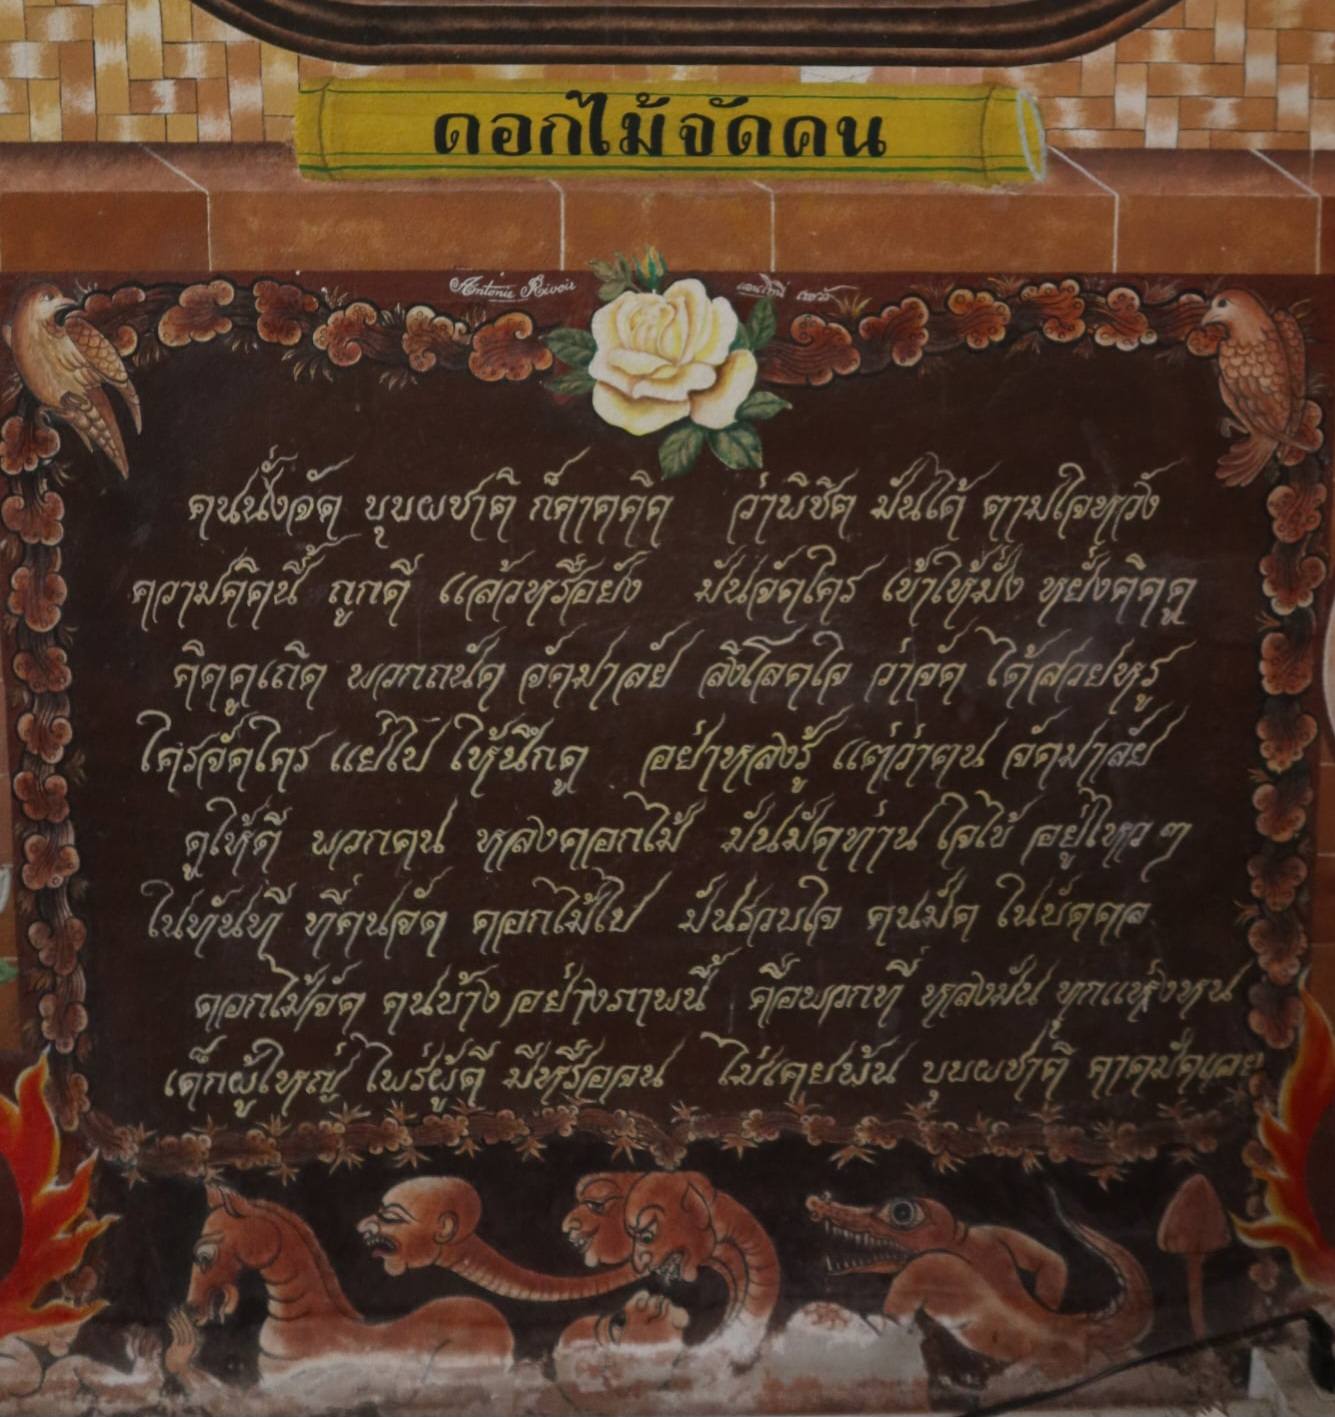 ดอกไม้จัดคน
Antonie Rivoir
คนนั่งจัด บุบผชาติ ก็คาดคิด ว่าพิชิต มันได้ ตามใจหวัง
ความคิดนี้ ถูกดี แล้วหรือยัง มันจัดใคร เข้าให้มั่ง หยั่งคิดดู
คิดดูเถิด พวกถนัด จัดมาลัย ลิงโลดใจ ว่าจัด ได้สวยหรู
ใครจัดใคร แย่ไป ให้นึกดู อย่าหลงรู้ แต่ว่าตน จัดมาลัย
ดูให้ดี พวกคน หลงดอกไม้ มันมัดท่าน ใจไข้ อยู่ไหวๆ
ในทันที ที่คนจัด ดอกไม้ไป มันรวบใจ คนมัด ในบัดดล
ดอกไม้จัด คนบ้าง อย่างภาพนี้ คือพวกที่ หลงมัน ทุกแห่งหน
เด็กผู้ใหญ่ ไพร่ผู้ดี มีหรือจน ไม่เคยพ้น บุบผชาติ คาดมัดเลย